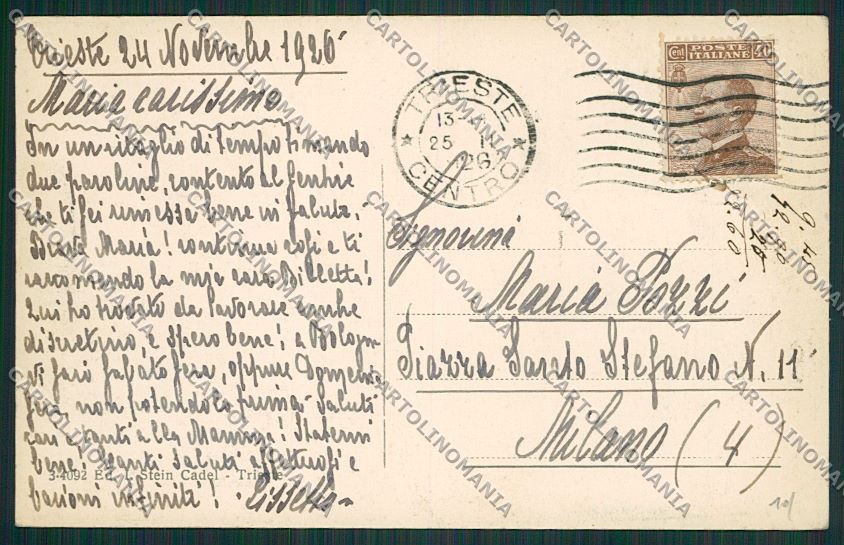 Trieste 24 Novembre 1926
Maria carissima
In un ritaglio di tempo ti mando
due paroline, contento al sentire
che ti sei rimessa bene in salute.
Brava Maria! continua così e ti
raccomando la mia cara
Qui ho trovato da lavorare anche
discretino e spero bene! a Bologn
vi farò sabato sera, oppure Domeni
sera, non potendo prima. Saluti
cari tanti alla Mamma! Statemi
bene! Tanti saluti affettuosi e
bacioni infiniti!
3-4092 Ed. Stein Cadel - Trieste
TRIESTE
13
25 11
26
CENTRO
Cent POSTE 40
ITALIANE
9.45
Signorina
Maria Pozzi
Piazza Santo Stefano N. 11
Milano (4)
10/
CARTOLINOMANIA